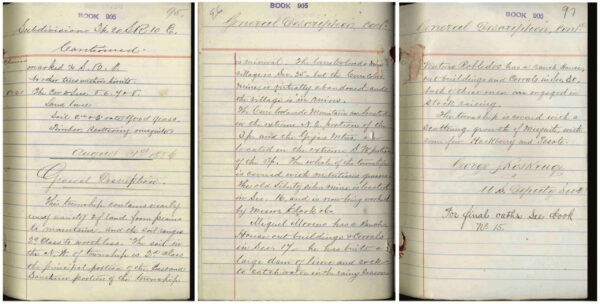 BOOK 905
95.
Subdivisions Tp 20 S. R. 10 E.
Continued.
marked ¼ S. B. P.
No other trees within limits.
Land level
Soil 2nd & 3rd rate Good grass.
Timber Scattering mesquite
August 21st 1886
General Description.
This township contains nearly
every variety of land from prairie
to mountain and the soil ranges
2d class to worthless. The soil in
the N.W. of Township is 2d class
the principal portion of the
portion of the Township
BOOK 905
96
General Description, cont.
is mineral. The Cerro Colorado Mine
village in Sec. 25, but the Cerro Colorado
Mine is partially abandoned and
the village is in ruins.
The Cerro Colorado Mountains are located
in the extreme N.E. portion of the
Tp. and the
located in the extreme S.W. portion
of the Tp. The whole of the township
is covered with nutritious grasses.
The old Liberty silver mine is located
in Sec. 16 and is now being worked
by Messrs Black & Co
Miguel Moreno has a Ranch
House out buildings & Corrals
in Sec. 17. he has built a
large dam of lime and rock
to catch water in the rainy season
BOOK 905
97
General Description, cont.
Ventura Robles has a ranch House,
out buildings and Corrals in Sec.
both of these men are engaged in
stock raising.
The township is covered with a
scattering growth of Mesquite, with
some few Hackberry and
George J Roskruge
U.S. Deputy Surv
For final oaths See Book
No 15.